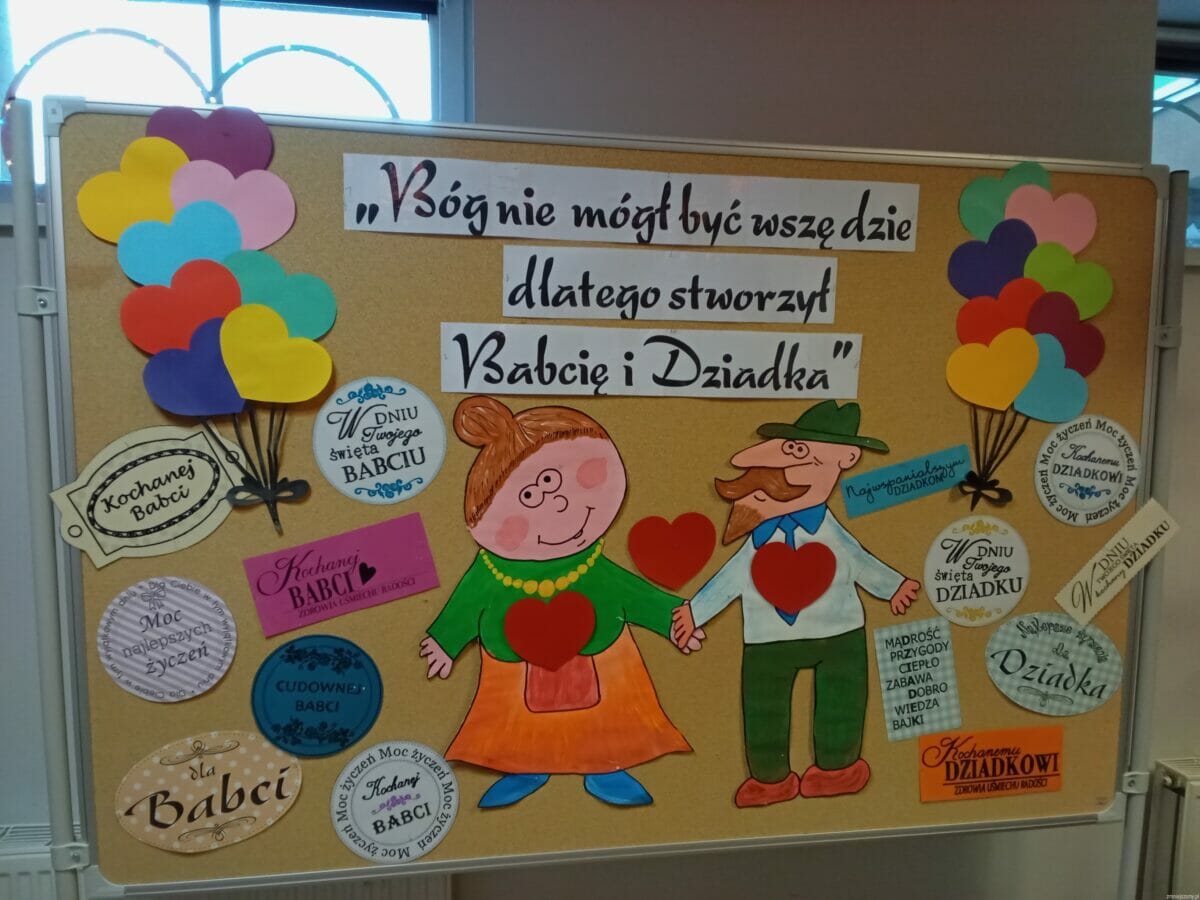 „Bóg nie mógł być wszędzie
dlatego stworzył
Babcię i Dziadka”
W DNIU
Twojego
święta
BABCIU
Kochanej
Babci
Kochanej
BABCI
ZDROWIA UŚMIECHU RADOŚCI
Moc
najlepszych
życzeń
CUDOWNEJ
BABCI
dla
Babci
Moc życzeń Moc życzeń Moc życzeń Moc życzeń
Kochanej
BABCI
Najwspanialszym
DZIADKOM
Moc życzeń Moc życzeń Moc życzeń Moc życzeń
Kochanemu
DZIADKOWI
W DNIU
Twojego
święta
DZIADKU
W DNIU
TWOJEGO
kochany DZIADKU
MĄDROŚĆ
PRZYGODY
CIEPŁO
ZABAWA DOBRO
WIEDZA
BAJKI
Najlepsze życzenia
dla
Dziadka
Kochanemu
DZIADKOWI
ZDROWIA UŚMIECHU RADOŚCI